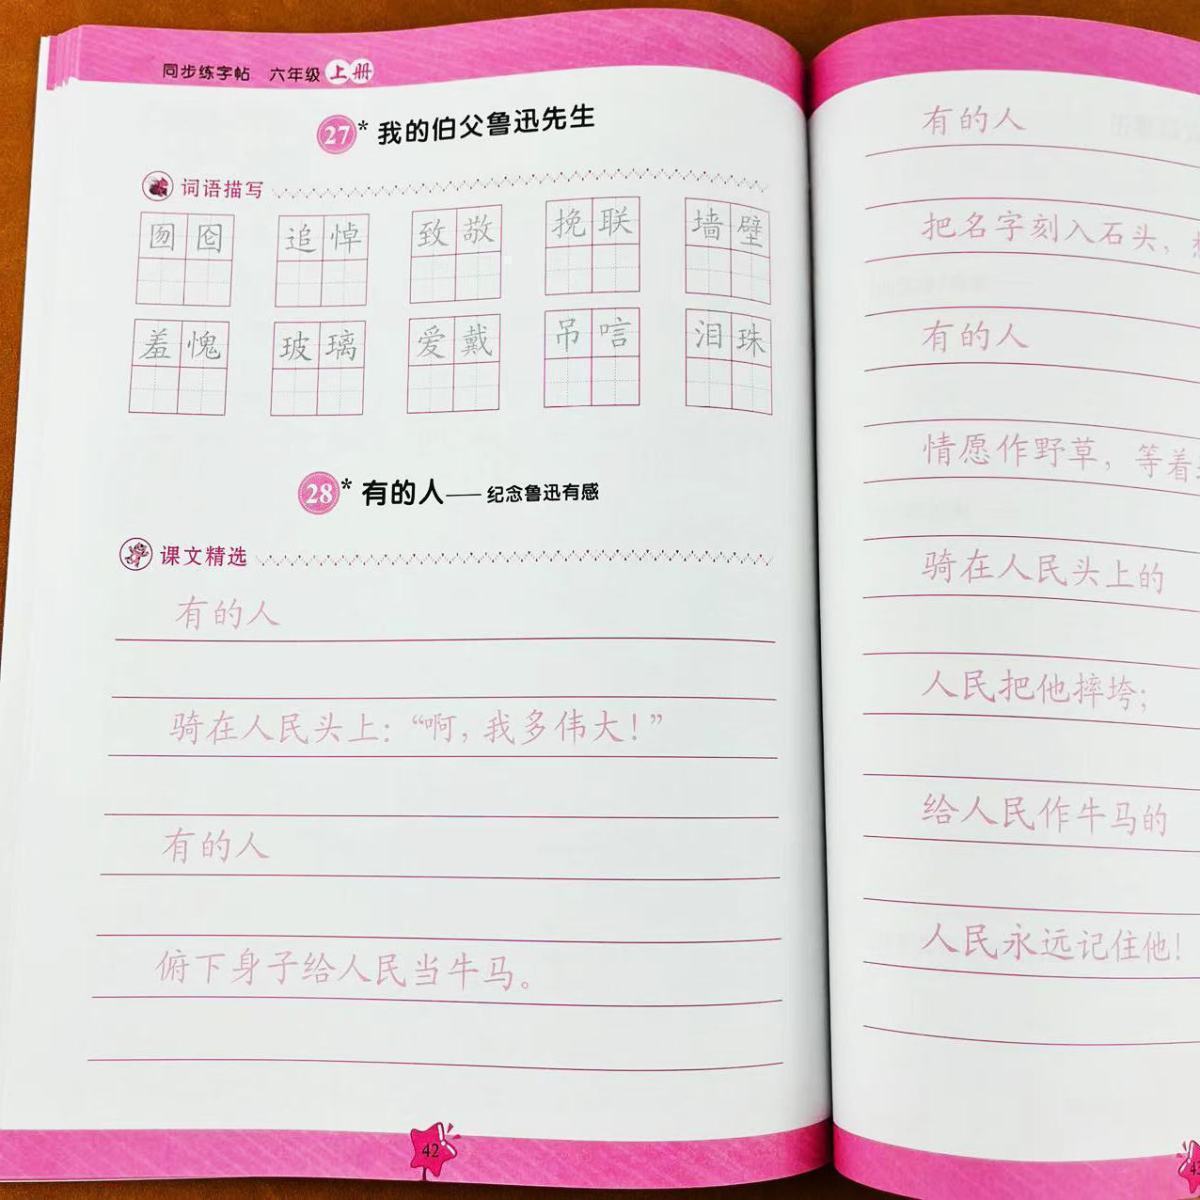 同步练字帖 六年级 上册
27* 我的伯父鲁迅先生
词语描写
囫囵 追悼 致敬 挽联 墙壁
羞愧 玻璃 爱戴 吊唁 泪珠
28* 有的人——纪念鲁迅有感
课文精选
有的人
骑在人民头上：“啊，我多伟大！”
有的人
俯下身子给人民当牛马。
42
有的人
把名字刻入石头，
有的人
情愿作野草，等着
骑在人民头上的
人民把他摔垮；
给人民作牛马的
人民永远记住他！